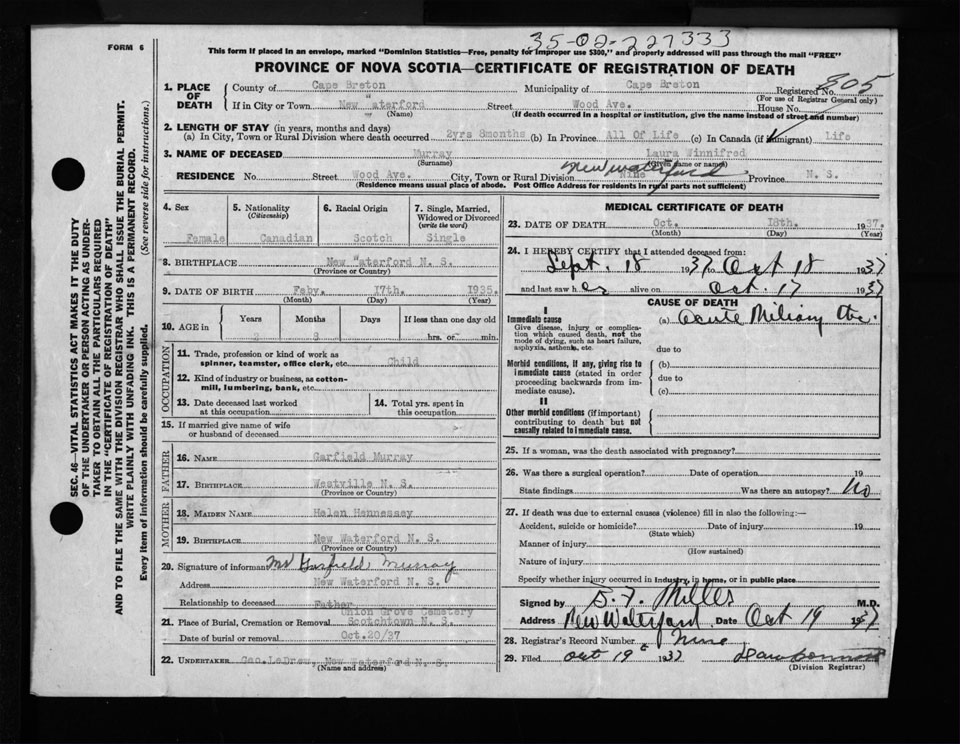 FORM 6
35-02-227333
This form if placed in an envelope, marked "Dominion Statistics—Free, penalty for improper use $300," and properly addressed will pass through the mail "FREE"
PROVINCE OF NOVA SCOTIA—CERTIFICATE OF REGISTRATION OF DEATH
SEC. 46—VITAL STATISTICS ACT MAKES IT THE DUTY
OF THE UNDERTAKER OR PERSON ACTING AS UNDER-
TAKER TO OBTAIN ALL THE PARTICULARS REQUIRED
IN THE "CERTIFICATE OF REGISTRATION OF DEATH"
AND TO FILE THE SAME WITH THE DIVISION REGISTRAR WHO SHALL ISSUE THE BURIAL PERMIT.
WRITE PLAINLY WITH UNFADING INK. THIS IS A PERMANENT RECORD.
Every item of information should be carefully supplied. (See reverse side for instructions.)
1. PLACE OF DEATH
County of Cape Breton Municipality of Cape Breton Registered No. 805
(For use of Registrar General only)
If in City or Town New "aterford Street Wood Ave. House No.
(Name) (If death occurred in a hospital or institution, give the name instead of street and number)
2. LENGTH OF STAY (in years, months and days)
(a) In City, Town or Rural Division where death occurred 2yrs 8months (b) In Province All Of Life (c) In Canada (if immigrant) Life
3. NAME OF DECEASED Murray Laura Winnifred
(Surname) (Given name or names)
RESIDENCE No. Street Wood Ave. City, Town or Rural Division New Waterford Nine Province N. S.
(Residence means usual place of abode. Post Office Address for residents in rural parts not sufficient)
4. Sex Female
5. Nationality (Citizenship) Canadian
6. Racial Origin Scotch
7. Single, Married, Widowed or Divorced (write the word) Single
8. BIRTHPLACE New "aterford N. S.
(Province or Country)
9. DATE OF BIRTH Feby. 17th. 1935.
(Month) (Day) (Year)
10. AGE in Years Months Days If less than one day old
2 8 hrs. or min.
OCCUPATION
11. Trade, profession or kind of work as spinner, teamster, office clerk, etc. Child
12. Kind of industry or business, as cotton-mill, lumbering, bank, etc.
13. Date deceased last worked at this occupation
14. Total yrs. spent in this occupation
15. If married give name of wife or husband of deceased
FATHER
16. NAME Garfield Murray
17. BIRTHPLACE Westville N. S.
(Province or Country)
MOTHER
18. MAIDEN NAME Helen Hennessey
19. BIRTHPLACE New Waterford N. S.
(Province or Country)
20. Signature of informant Mr Garfield Murray
Address New Waterford N. S.
Relationship to deceased Father
21. Place of Burial, Cremation or Removal Union Grove Cemetery Scotchtown N. S.
Date of burial or removal Oct.20/37
22. UNDERTAKER Geo. LeDrew, New Waterford N. S.
(Name and address)
MEDICAL CERTIFICATE OF DEATH
23. DATE OF DEATH Oct. 18th. 1937.
(Month) (Day) (Year)
24. I HEREBY CERTIFY that I attended deceased from:
Sept. 18 1937 to Oct 18 1937
and last saw her alive on Oct. 17 1937
CAUSE OF DEATH
I
Immediate cause (a) Acute Miliary tbc.
Give disease, injury or complication which caused death, not the mode of dying, such as heart failure, asphyxia, asthenia, etc.
due to
Morbid conditions, if any, giving rise to immediate cause (stated in order proceeding backwards from immediate cause).
(b)
due to
(c)
II
Other morbid conditions (if important) contributing to death but not causally related to immediate cause.
25. If a woman, was the death associated with pregnancy?
26. Was there a surgical operation? Date of operation 19
State findings Was there an autopsy? No
27. If death was due to external causes (violence) fill in also the following:—
Accident, suicide or homicide? Date of injury 19
(State which)
Manner of injury
(How sustained)
Nature of injury
Specify whether injury occurred in industry, in home, or in public place
Signed by B. F. Miller M.D.
Address New Waterford Date Oct 19 1937
28. Registrar's Record Number Nine
29. Filed Oct 19th 1937
(Division Registrar)